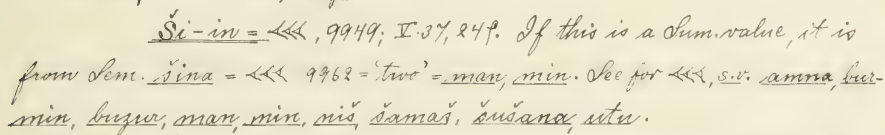 Ši-in = 𒌍, 9949; V. 37, 24f. If this is a Sum. value, it is
from Sem. šina = 𒌍 9962 = 'two' = man, min. See for 𒌍, s.v. amna, bur-
min, buzur, man, min, niš, šamaš, šušana, utu.